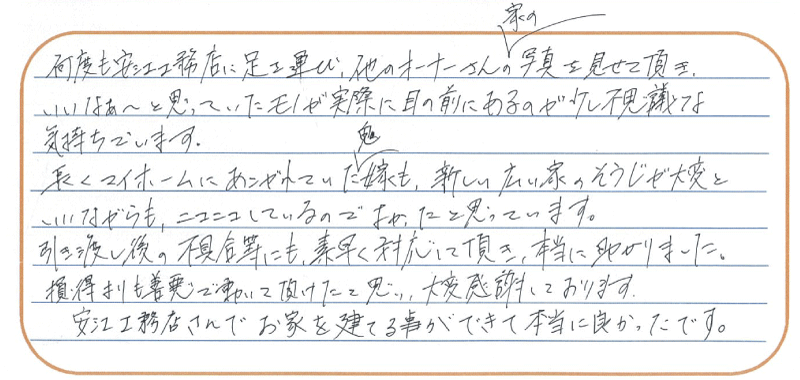 家の
何度も安江工務店に足を運び、他のオーナーさんの写真を見せて頂き、
いいなぁ〜と思っていたモノが実際に目の前にあるのが少し不思議な
気持ちでいます。
鬼
長くマイホームにあこがれていた嫁も、新しい広い家のそうじが大変と
いいながらも、ニコニコしているのでよかったと思っています。
引き渡し後の不具合等にも、素早く対応して頂き、本当に助かりました。
損得よりも善悪で動いて頂けたと思い、大変感謝しております。
安江工務店さんでお家を建てる事ができて本当に良かったです。